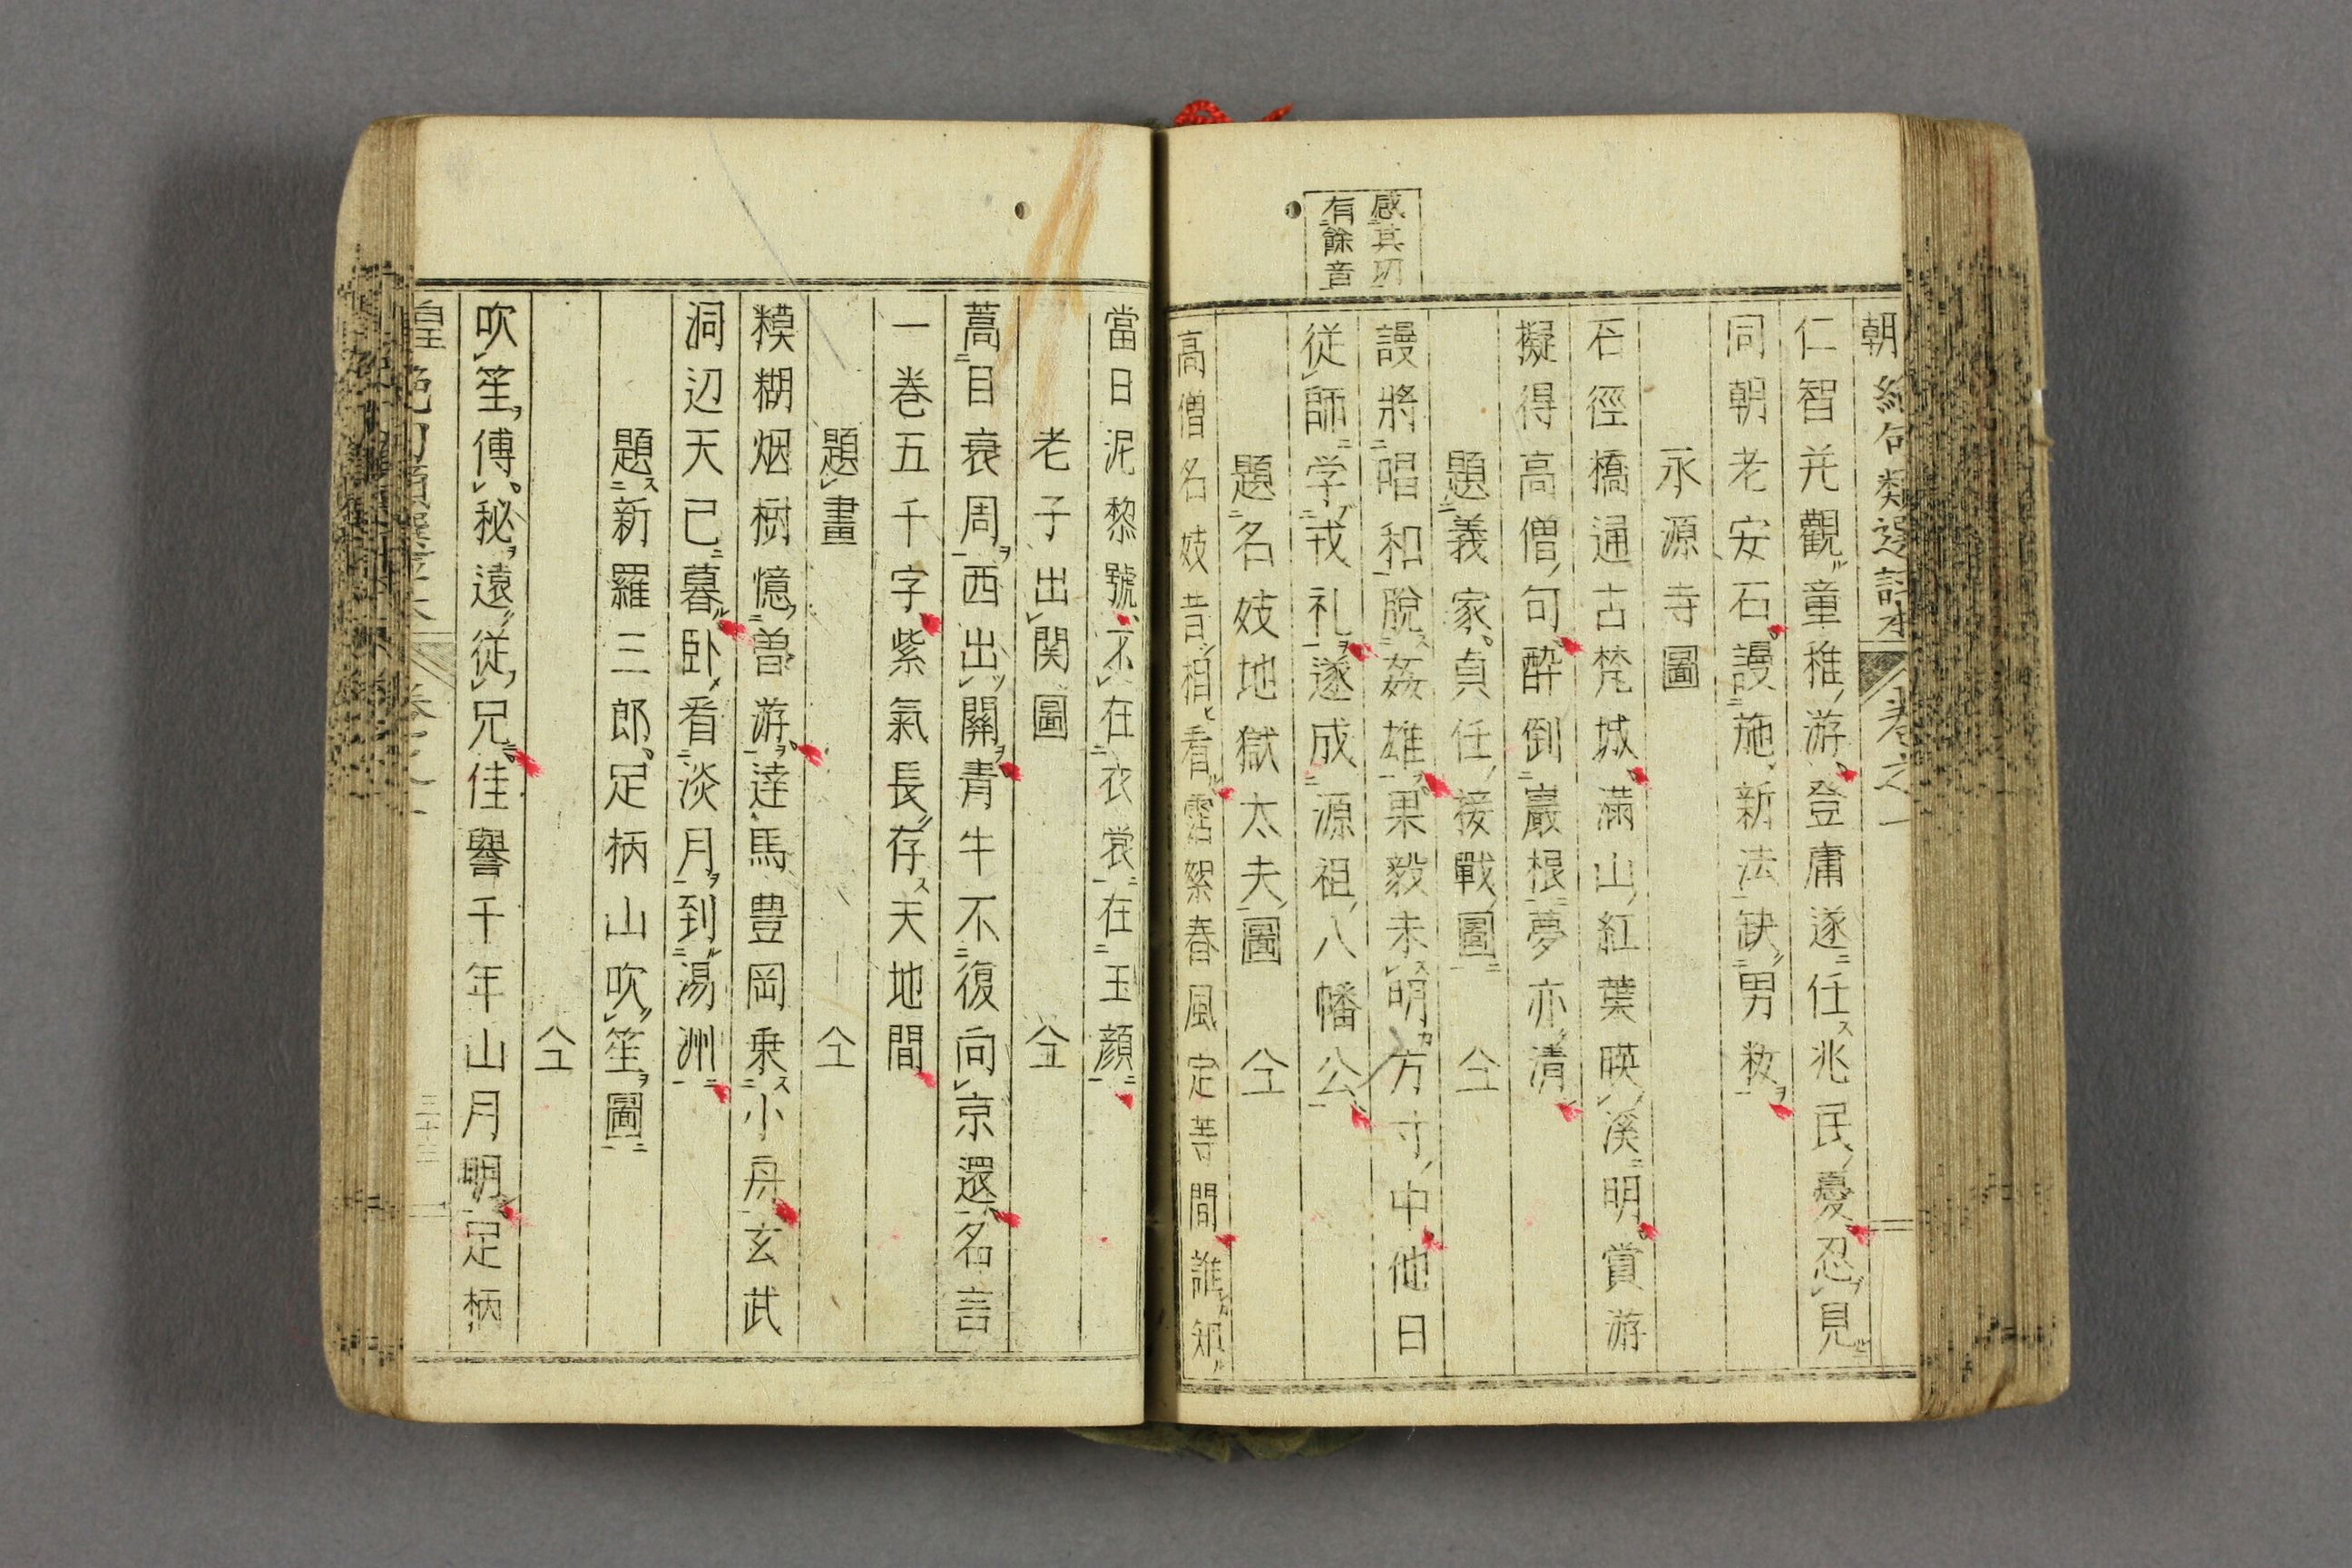 感其切
有餘音
朝絶句類選評本 卷之一
仁智并觀童稚游登庸遂任兆民憂忍見
同朝老安石謾施新法缺男敉
永源寺圖
石徑橋通古梵城滿山紅葉暎溪明賞游
擬得高僧句醉倒巖根夢亦清
題義家貞任接戰圖 仝
謾將唱和脫姦雄果毅未明方寸中他日
從師学戎礼遂成源祖八幡公
題名妓地獄太夫圖 仝
高僧名妓昔相看霑絮春風定等間誰知
當日泥黎號不在衣裳在玉顔
老子出関圖 仝
蒿目衰周西出關青牛不復向京還名言
一巻五千字紫氣長存天地間
題畫 仝
糢糊烟樹憶曽游逹馬豊岡乗小舟玄武
洞辺天已暮卧看淡月到湯洲
題新羅三郎足柄山吹笙圖
仝
吹笙傅秘遠從兄佳譽千年山月明定柄
三十三